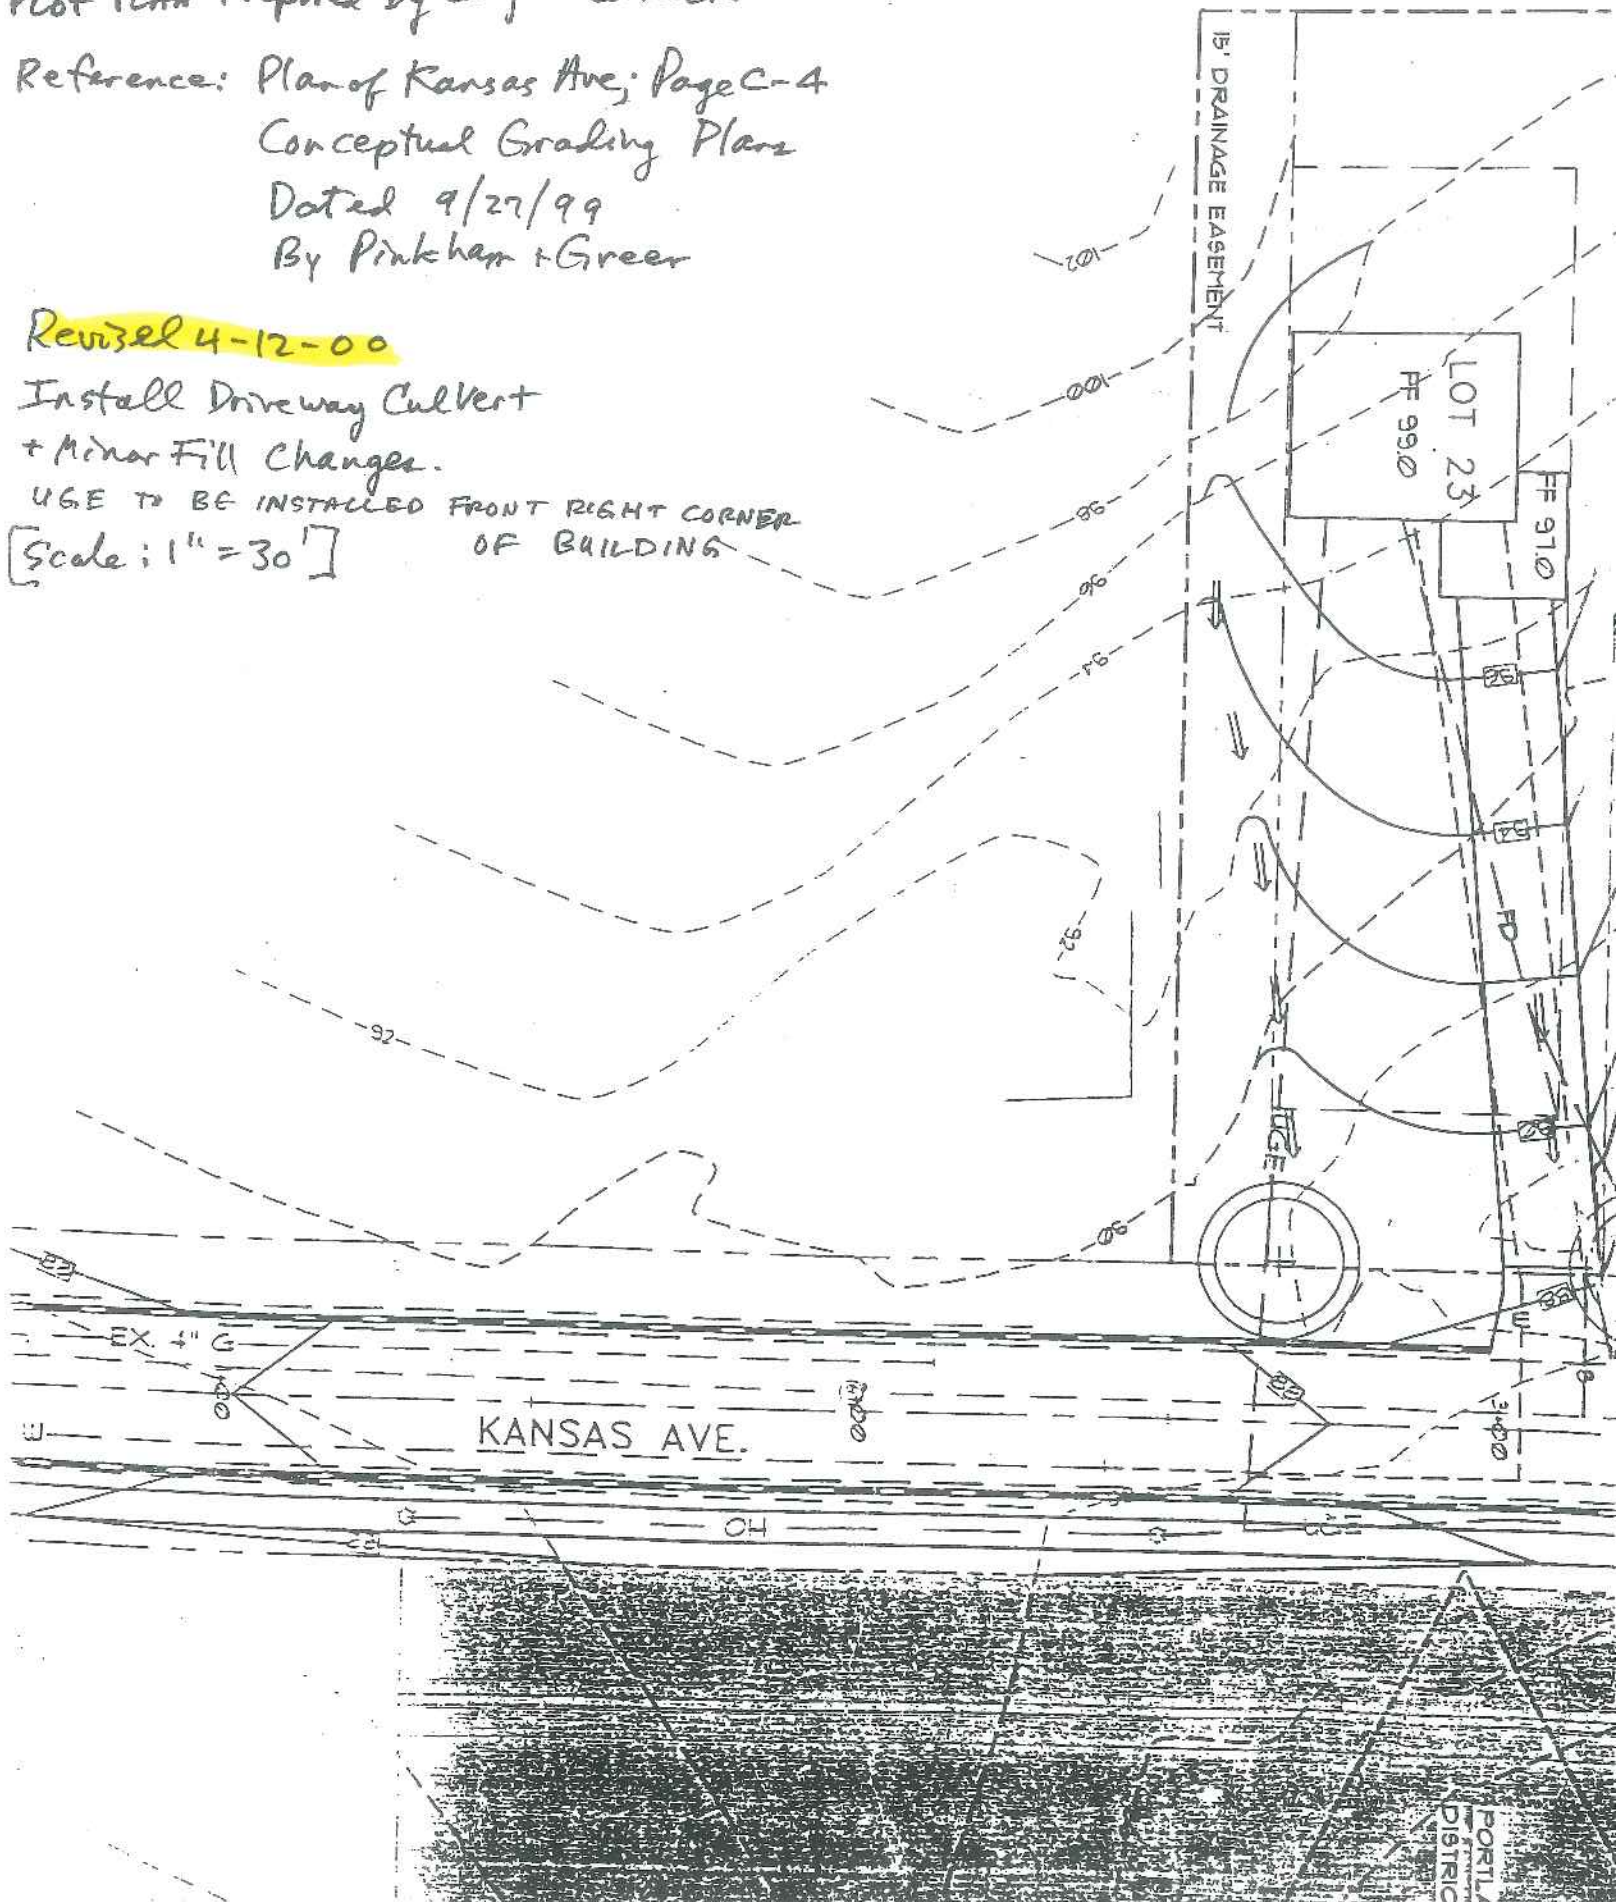 PLOT PLAN Prepared by
Reference: Plan of Kansas Ave; Page C-4
Conceptual Grading Plans
Dated 9/27/99
By Pinkham + Greer
Revised 4-12-00
Install Driveway Culvert
+ Minor Fill Changes.
UGE TO BE INSTALLED FRONT RIGHT CORNER
OF BUILDING
[Scale: 1" = 30']
15' DRAINAGE EASEMENT
102
100
98
96
94
92
92
90
LOT 23
FF 99.0
FF 97.0
96
94
FD
UGE
88
EX. 4" G
KANSAS AVE.
3+00
E
OH
PORTL
DISTRIC